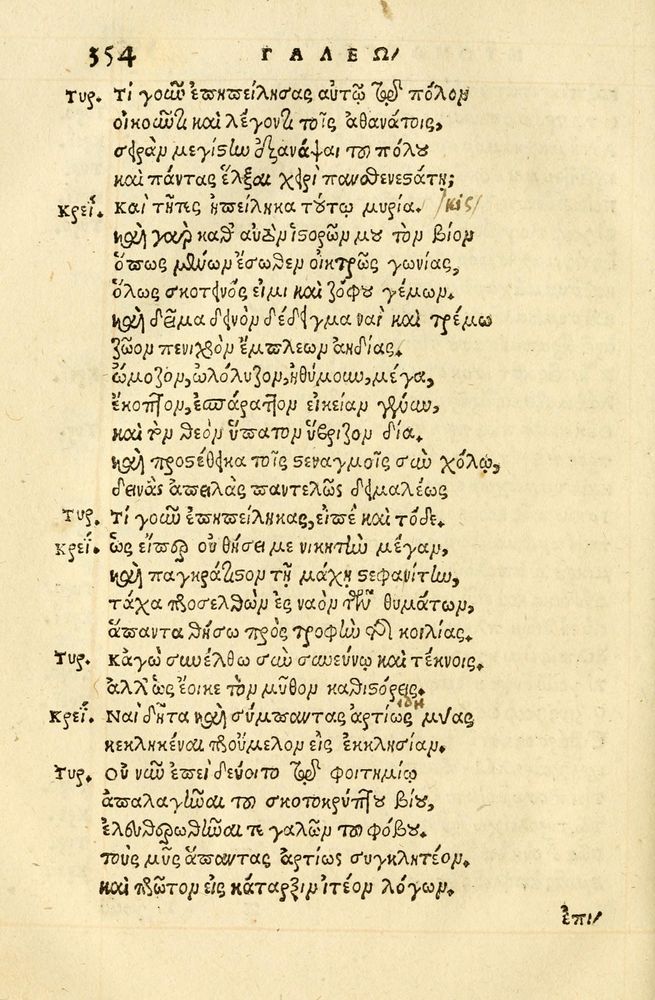 354 ΓΑΛΕΩ/
Τυρ. Τί γοῦν ἐπηπείλησας αὐτῷ τῷ πόλον
οἰκοῦντι καὶ λέγοντι τοῖς ἀθανάτοις,
σειρὰν μεγίστην ἐξανάψαι τοῦ πόλου
καὶ πάντας ἕλξαι χειρὶ πανσθενεστάτῃ;
Κρεΐ. Καί τῆτες ἠπείληκα τούτῳ μυρία. /κις/
καὶ γὰρ καθ᾽ αὑτὸν ἱστορῶν μου τὸν βίον
ὅπως μένων ἔσωθεν οἰκτρῶς γωνίας,
ὅλως σκοτεινός εἰμι καὶ ζόφου γέμων.
καὶ δεῖμα δεινὸν δέδειγμαι ναὶ καὶ τρέμω
ζῶον πενιχρὸν ἔμπλεων ἀηδίας.
ᾤμωζον, ὠλόλυζον, ἠθύμουν, μέγα,
ἔκοπτον, ἐσπάραττον
καὶ τὸν θεὸν ὕπατον ὕβριζον δία.
καὶ προσέθηκα τοῖς στεναγμοῖς σὺν χόλῳ,
δεινὰς ἀπειλὰς παντελῶς δειμαλέως
Τυρ. Τί γοῦν ἐπηπείληκας, εἰπὲ καὶ τόδε.
Κρεΐ. ὡς εἴπερ οὐ θήσει με νικητὴν μέγαν,
καὶ παγκράτιστον τῇ μάχῃ στεφανίτην,
τάχα προσελθὼν ἐς ναὸν τῶν θυμάτων,
ἅπαντα θήσω πρὸς τροφὴν τῆς κοιλίας.
Τυρ. Κἀγὼ συνέλθω σὺν συνεύνῳ καὶ τέκνοις.
ἀλλ᾽ ὡς ἔοικε τὸν μῦθον καθιστόρεις.
Κρεΐ. Ναὶ δῆτα καὶ σύμπαντας ἀρτίως μύας ιδη
κεκληκέναι προὔμελον εἰς ἐκκλησίαν.
Τυρ. Οὐ νοῦν ἐπεὶ δεύοιτο τῷ φοιτημίῳ
ἀπαλαγῆναι τοῦ σκοτοκρύπτου βίου,
ἐλευθερωθῆναί τε γαλῶν τοῦ φόβου.
τοὺς μῦς ἅπαντας ἀρτίως συγκλητέον.
καὶ πρῶτον εἰς κάταρξιν ἰτέον λόγων.
ἐπι/